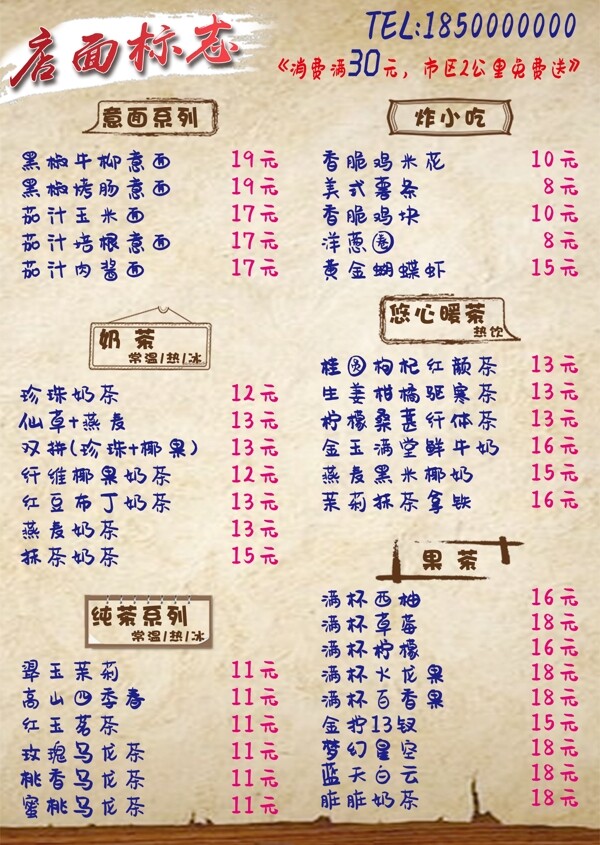 店面标志
TEL:1850000000
《消费满30元，市区2公里免费送》
意面系列
黑椒牛柳意面 19元
黑椒烤肠意面 19元
茄汁玉米面 17元
茄汁培根意面 17元
茄汁肉酱面 17元
奶茶
常温/热/冰
珍珠奶茶 12元
仙草+燕麦 13元
双拼(珍珠+椰果) 13元
纤维椰果奶茶 12元
红豆布丁奶茶 13元
燕麦奶茶 13元
抹茶奶茶 15元
纯茶系列
常温/热/冰
翠玉茉莉 11元
高山四季春 11元
红玉茗茶 11元
玫瑰乌龙茶 11元
桃香乌龙茶 11元
蜜桃乌龙茶 11元
炸小吃
香脆鸡米花 10元
美式薯条 8元
香脆鸡块 10元
洋葱圈 8元
黄金蝴蝶虾 15元
悠心暖茶
热饮
桂圆枸杞红颜茶 13元
生姜柑橘驱寒茶 13元
柠檬桑葚纤体茶 13元
金玉满堂鲜牛奶 16元
燕麦黑米椰奶 15元
茉莉抹茶拿铁 16元
果茶
满杯西柚 16元
满杯草莓 18元
满杯柠檬 16元
满杯火龙果 18元
满杯百香果 18元
金拧13钗 15元
梦幻星空 18元
蓝天白云 18元
脏脏奶茶 18元